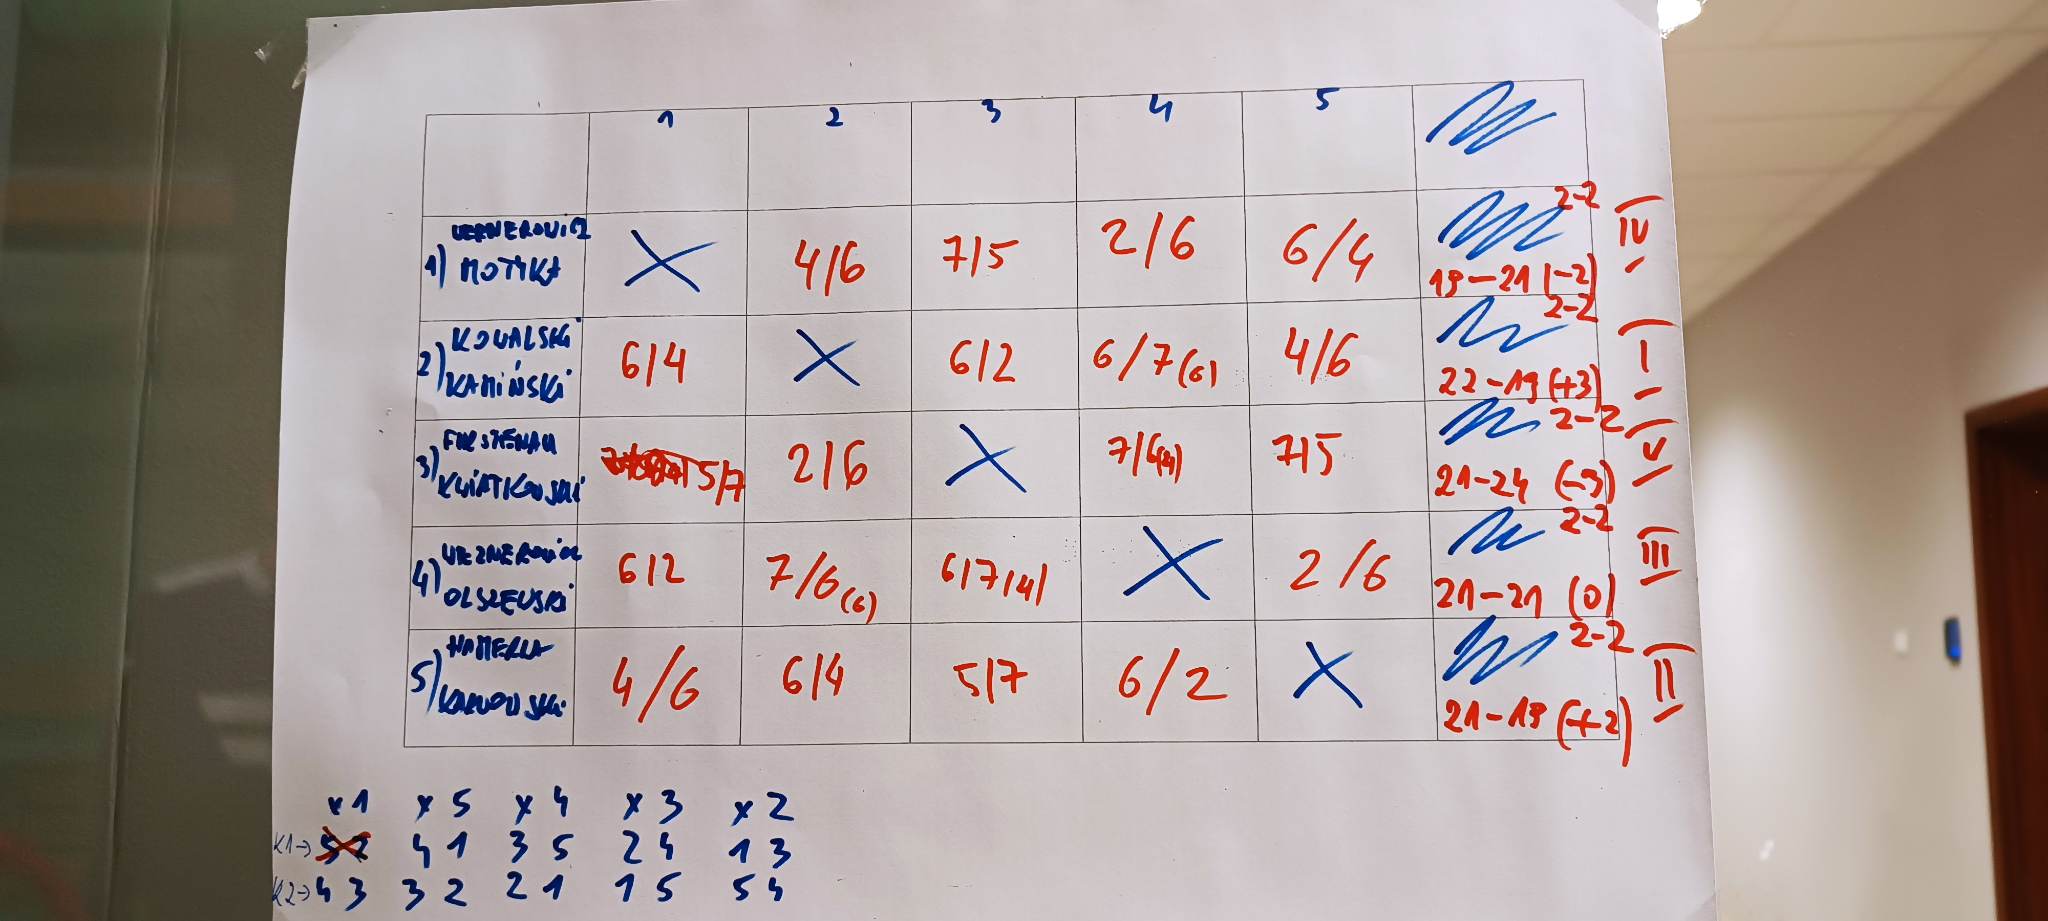 1 2 3 4 5
WERNEROWICZ 2-2
1) MOTYKA 4/6 7/5 2/6 6/4 IV
19-21 (-2)
KOWALSKI 2-2
2) KAMIŃSKI 6/4 6/2 6/7(6) 4/6 I
22-19 (+3)
FURSTENAU 2-2
3) KWIATKOWSKI 5/7 2/6 7/6(4) 7/5 V
21-24 (-3)
WERNEROWICZ 2-2
4) OLSZEWSKI 6/2 7/6(6) 6/7(4) 2/6 III
21-21 (0)
HAMERLA 2-2
5) 4/6 6/4 5/7 6/2 II
21-19 (+2)
x 1 x 5 x 4 x 3 x 2
K1→ 5 2 4 1 3 5 2 4 1 3
K2→ 4 3 3 2 2 1 1 5 5 4